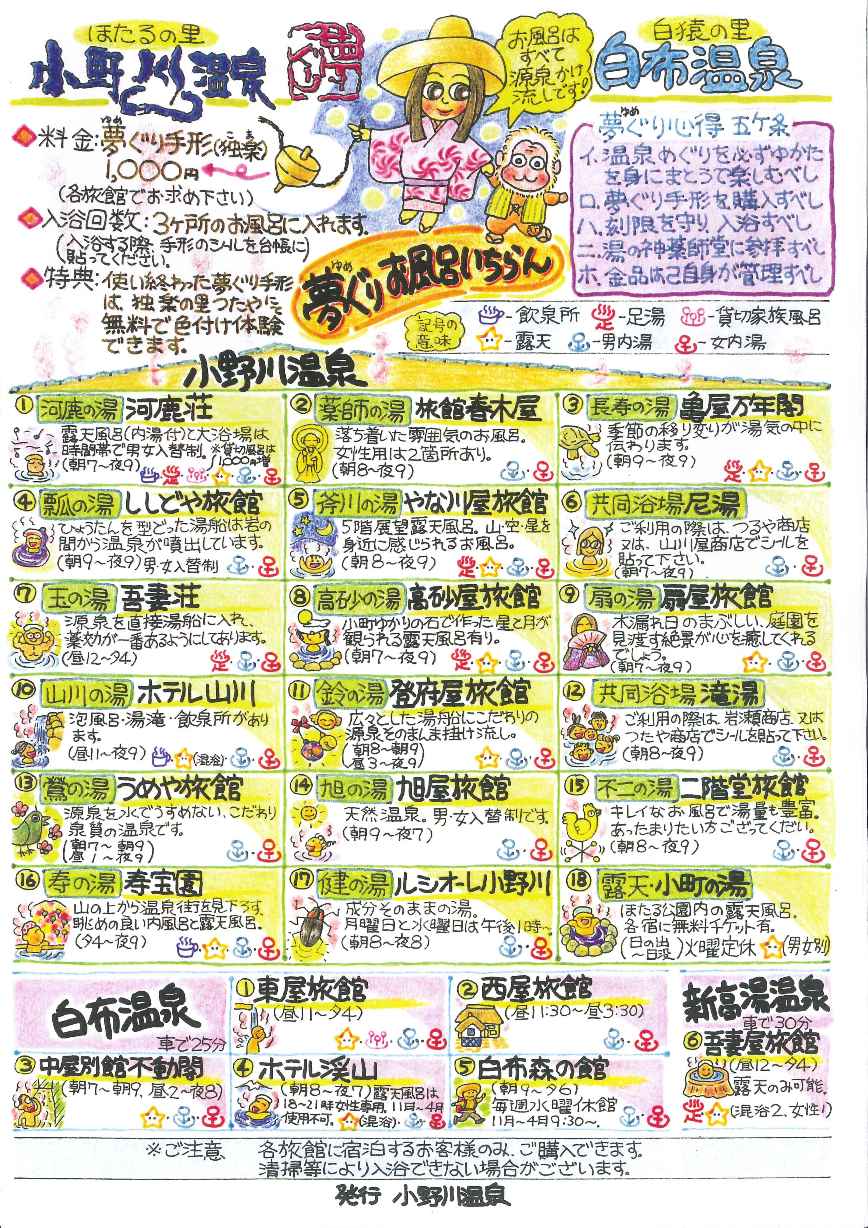 ほたるの里
小野川温泉
お風呂は
すべて
源泉かけ
流しです!
白猿の里
白布温泉
料金:夢ぐり手形(独楽)
ゆめ
こま
1,000円
(各旅館でお求め下さい)
入浴回数:3ヶ所のお風呂に入れます。
(入浴する際、手形のシールを台帳に)
貼ってください。
特典:使い終わった夢ぐり手形
は、独楽の里つたやにて
無料で色付け体験
できます。
夢ぐり心得 五ケ条
ゆめ
イ.温泉めぐりを必ずゆかた
を身にまとうて楽しむべし
ロ.夢ぐり手形を購入すべし
ハ.刻限を守り、入浴すべし
ニ.湯の神薬師堂に参拝すべし
ホ.金品は己自身が管理すべし
ゆめ
夢ぐりお風呂いちらん
記号の
意味
-飲泉所 -足湯 -貸切家族風呂
-露天 -男内湯 -女内湯
小野川温泉
① 河鹿の湯 河鹿荘
露天風呂(内湯付)と大浴場は
時間帯で男女入替制。※貸切風呂は
1,000円増
(朝7〜夜9)
② 薬師の湯 旅館春木屋
落ち着いた雰囲気のお風呂。
女性用は2箇所あり。
(朝8〜夜9)
③ 長寿の湯 亀屋万年閣
季節の移り変りが湯気の中に
伝わります。
(朝9〜夜9)
④ 瓢の湯 ししどや旅館
ひょうたんを型どった湯船は岩の
間から温泉が噴出しています。
(朝9〜夜9)男・女入替制
⑤ 斧川の湯 やな川屋旅館
5階展望露天風呂。山・空・星を
身近に感じられるお風呂。
(朝8〜夜9)
⑥ 共同浴場 尼湯
ご利用の際は、つるや商店
又は、山川屋商店でシールを
貼って下さい。
(朝7〜夜9)
⑦ 玉の湯 吾妻荘
源泉を直接湯船に入れ、
薬効が一番あるようにしてあります。
(昼12〜夕4)
⑧ 高砂の湯 高砂屋旅館
小町ゆかりの石で作った星と月が
観られる露天風呂有り。
(朝7〜夜9)
⑨ 扇の湯 扇屋旅館
木漏れ日のまぶしい、庭園を
見渡す絶景が心を癒してくれる
でしょう。
(朝7〜夜9)
⑩ 山川の湯 ホテル山川
泡風呂・湯滝・飲泉所があり
ます。
(昼11〜夜9) (混浴)
⑪ 鈴の湯 登府屋旅館
広々とした湯船にこだわりの
源泉そのまんま掛け流し。
(朝8〜朝9)
(昼3〜夜9)
⑫ 共同浴場 滝湯
ご利用の際は、岩瀬商店、又は
つたや商店でシールを貼って下さい。
(朝8〜夜9)
⑬ 鶯の湯 うめや旅館
源泉を水でうすめない、こだわり
泉質の温泉です。
(朝7〜朝9)
(昼1〜夜9)
⑭ 旭の湯 旭屋旅館
天然温泉。男・女入替制です。
(朝9〜夜7)
⑮ 不二の湯 二階堂旅館
キレイなお風呂で湯量も豊富。
あったまりたい方ござってくだい。
(朝8〜夜9)
⑯ 寿の湯 寿宝園
山の上から温泉街を見下ろす、
眺めの良い内風呂と露天風呂。
(夕4〜夜9)
⑰ 健の湯 ルシオーレ小野川
成分そのままの湯。
月曜日と水曜日は午後1時〜
(朝8〜夜8)
⑱ 露天・小町の湯
ほたる公園内の露天風呂。
各宿に無料チケット有。
(日の出
〜日没)火曜定休 (男女別)
白布温泉
車で25分
① 東屋旅館
(昼11〜夕4)
② 西屋旅館
(昼11:30〜昼3:30)
③ 中屋別館不動閣
(朝7〜朝9、昼2〜夜8)
④ ホテル渓山
(朝8〜夜7)露天風呂は
18〜21時女性専用、11月〜4月
使用不可。 (混浴)
⑤ 白布森の館
(朝9〜夕6)
毎週水曜休館
11月〜4月9:30〜。
新高湯温泉
車で30分
⑥ 吾妻屋旅館
(昼12〜夕4)
露天のみ可能。
(混浴2、女性1)
※ご注意 各旅館に宿泊するお客様のみ、ご購入できます。
清掃等により入浴できない場合がございます。
発行 小野川温泉